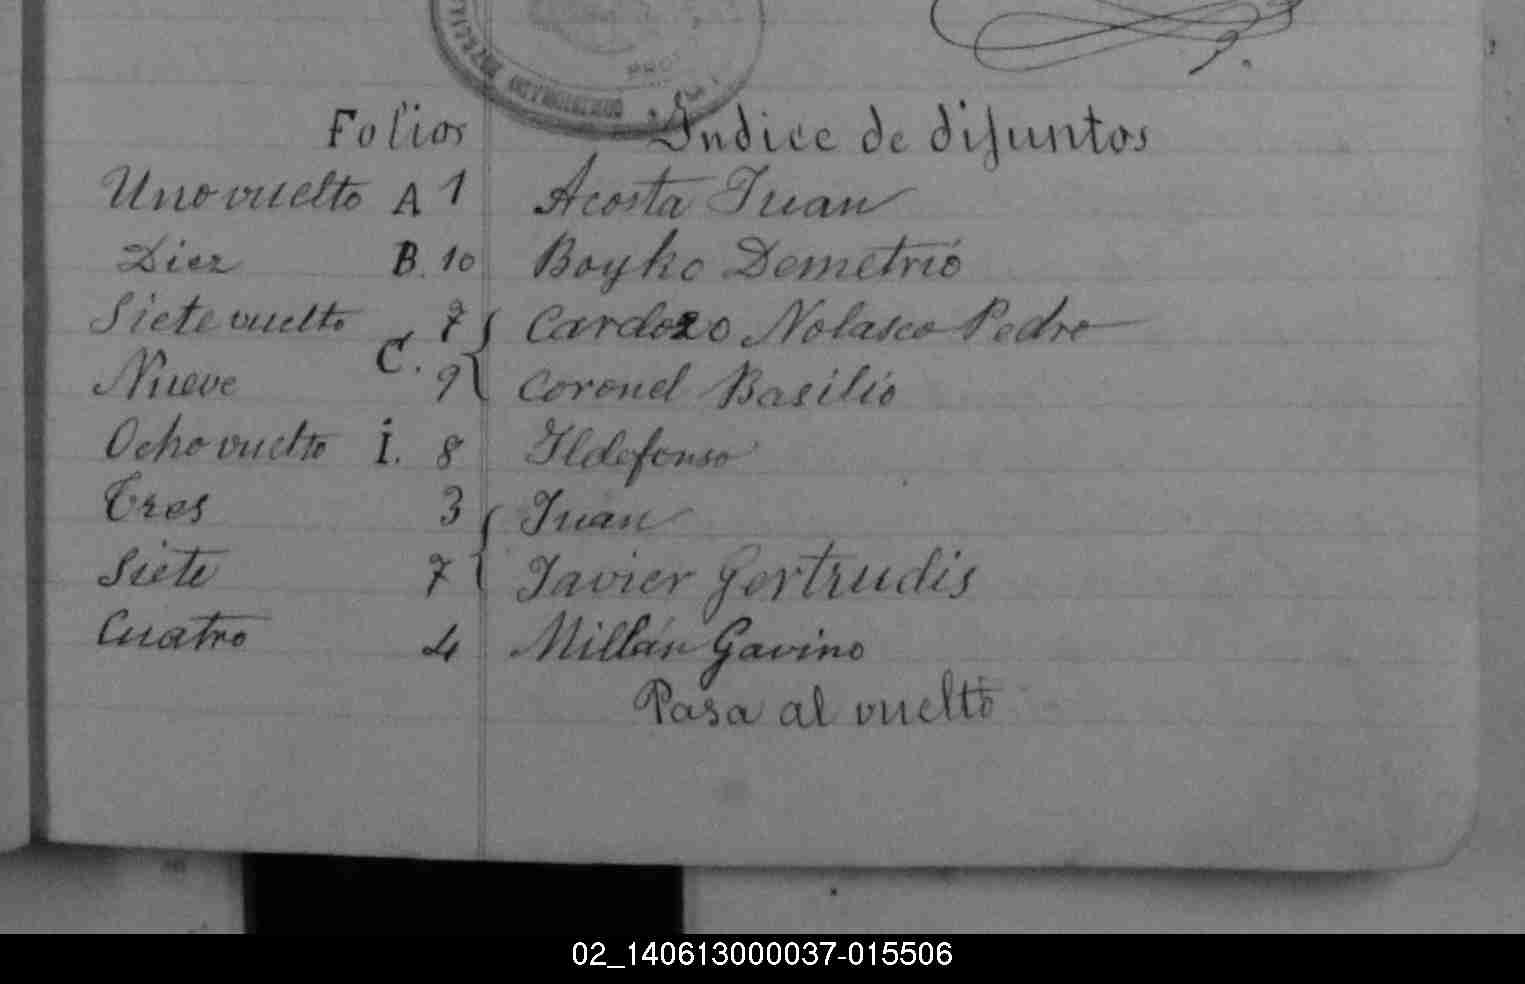 Folios Indice de difuntos
Uno vuelto A 1 Acosta Juan
Diez B. 10 Boyko Demetrio
Siete vuelto 7 Cardozo Nolasco Pedro
C.
Nueve 9 Coronel Basilio
Ocho vuelto I. 8 Ildefonso
Tres 3 Juan
Siete 7 Javier Gertrudis
Cuatro 4 Millán Gavino
Pasa al vuelto
02_140613000037-015506